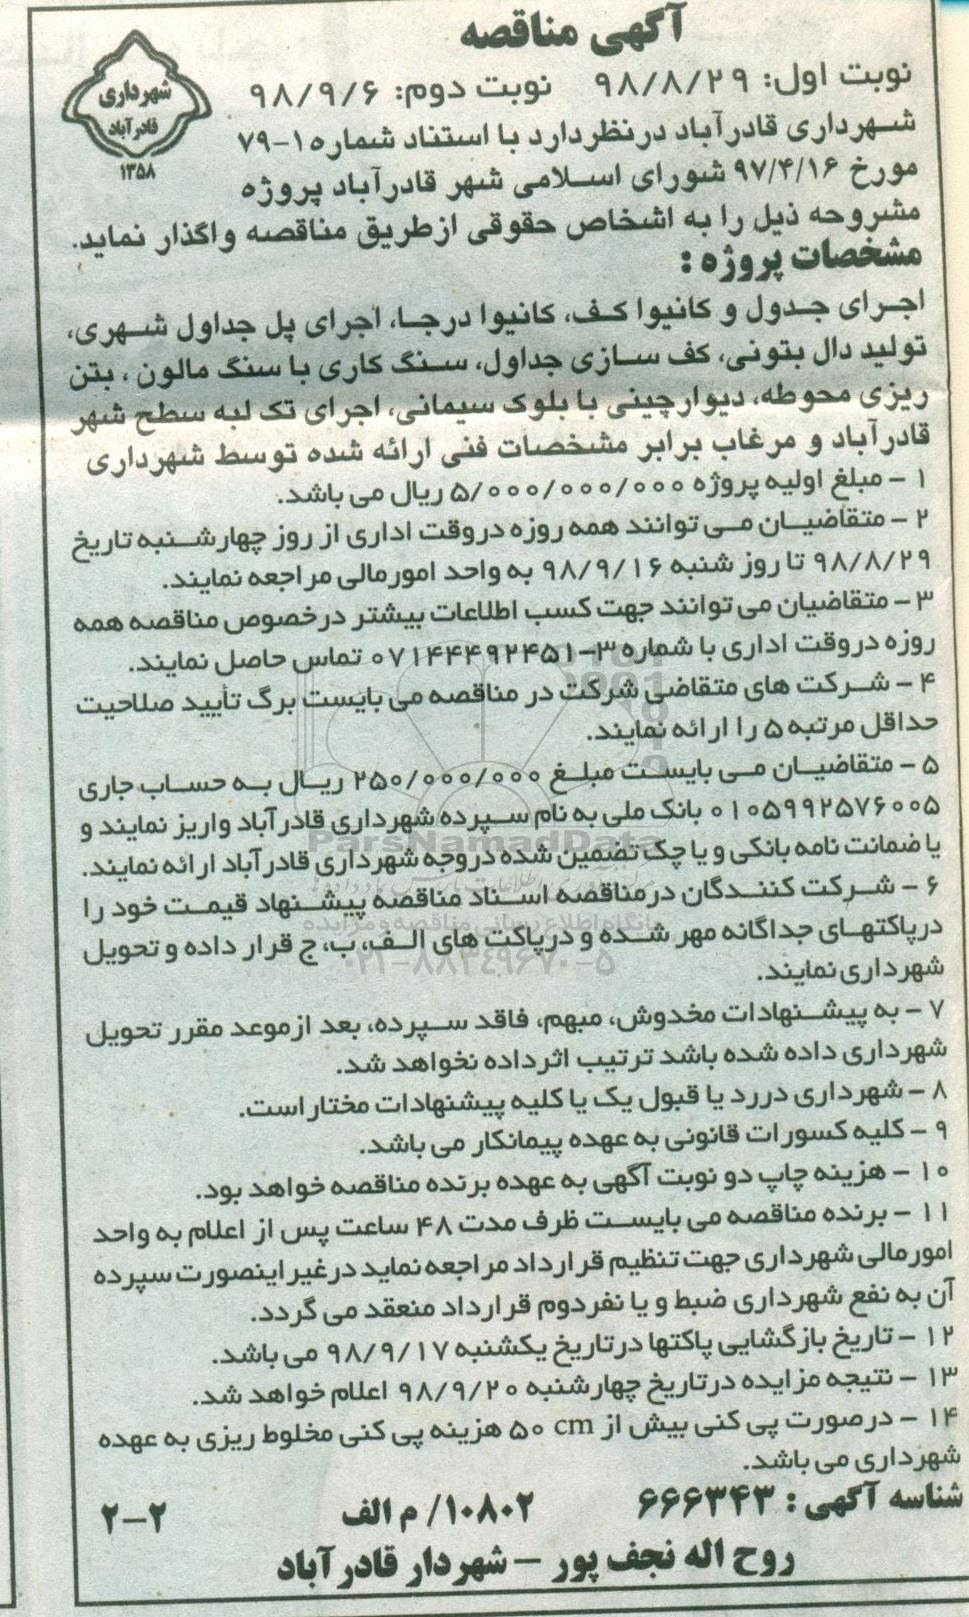 آگهی مناقصه
نوبت اول: ۹۸/۸/۲۹ نوبت دوم: ۹۸/۹/۶
شهرداری
قادرآباد
۱۳۵۸
شهرداری قادرآباد درنظردارد با استناد شماره ۱-۷۹
مورخ ۹۷/۴/۱۶ شورای اسلامی شهر قادرآباد پروژه
مشروحه ذیل را به اشخاص حقوقی ازطریق مناقصه واگذار نماید.
مشخصات پروژه:
اجرای جدول و کانیوا کف، کانیوا درجا، اجرای پل جداول شهری،
تولید دال بتونی، کف سازی جداول، سنگ کاری با سنگ مالون ، بتن
ریزی محوطه، دیوارچینی با بلوک سیمانی، اجرای تک لبه سطح شهر
قادرآباد و مرغاب برابر مشخصات فنی ارائه شده توسط شهرداری
۱ - مبلغ اولیه پروژه ۵/۰۰۰/۰۰۰/۰۰۰ ریال می باشد.
۲ - متقاضیان می توانند همه روزه دروقت اداری از روز چهارشنبه تاریخ
۹۸/۸/۲۹ تا روز شنبه ۹۸/۹/۱۶ به واحد امورمالی مراجعه نمایند.
۳ - متقاضیان می توانند جهت کسب اطلاعات بیشتر درخصوص مناقصه همه
روزه دروقت اداری با شماره ۳-۰۷۱۴۴۴۹۲۴۵۱ تماس حاصل نمایند.
۴ - شرکت های متقاضی شرکت در مناقصه می بایست برگ تأیید صلاحیت
حداقل مرتبه ۵ را ارائه نمایند.
۵ - متقاضیان می بایست مبلغ ۲۵۰/۰۰۰/۰۰۰ ریال به حساب جاری
۰۱۰۵۹۹۲۵۷۶۰۰۵ بانک ملی به نام سپرده شهرداری قادرآباد واریز نمایند و
یا ضمانت نامه بانکی و یا چک تضمین شده دروجه شهرداری قادرآباد ارائه نمایند.
۶ - شرکت کنندگان درمناقصه اسناد مناقصه پیشنهاد قیمت خود را
درپاکتهای جداگانه مهر شده و درپاکت های الف، ب، ج قرار داده و تحویل
شهرداری نمایند.
۷ - به پیشنهادات مخدوش، مبهم، فاقد سپرده، بعد ازموعد مقرر تحویل
شهرداری داده شده باشد ترتیب اثرداده نخواهد شد.
۸ - شهرداری دررد یا قبول یک یا کلیه پیشنهادات مختار است.
۹ - کلیه کسورات قانونی به عهده پیمانکار می باشد.
۱۰ - هزینه چاپ دو نوبت آگهی به عهده برنده مناقصه خواهد بود.
۱۱ - برنده مناقصه می بایست ظرف مدت ۴۸ ساعت پس از اعلام به واحد
امورمالی شهرداری جهت تنظیم قرارداد مراجعه نماید درغیر اینصورت سپرده
آن به نفع شهرداری ضبط و یا نفردوم قرارداد منعقد می گردد.
۱۲ - تاریخ بازگشایی پاکتها درتاریخ یکشنبه ۹۸/۹/۱۷ می باشد.
۱۳ - نتیجه مزایده درتاریخ چهارشنبه ۹۸/۹/۲۰ اعلام خواهد شد.
۱۴ - درصورت پی کنی بیش از ۵۰ cm هزینه پی کنی مخلوط ریزی به عهده
شهرداری می باشد.
شناسه آگهی : ۶۶۶۳۴۳ ۱۰۸۰۲/ م الف ۲-۲
روح اله نجف پور - شهردار قادرآباد
ParsNamadData
پایگاه اطلاع رسانی مناقصه و مزایده
۰۲۱-۸۸۳۴۹۶۷۰-۵